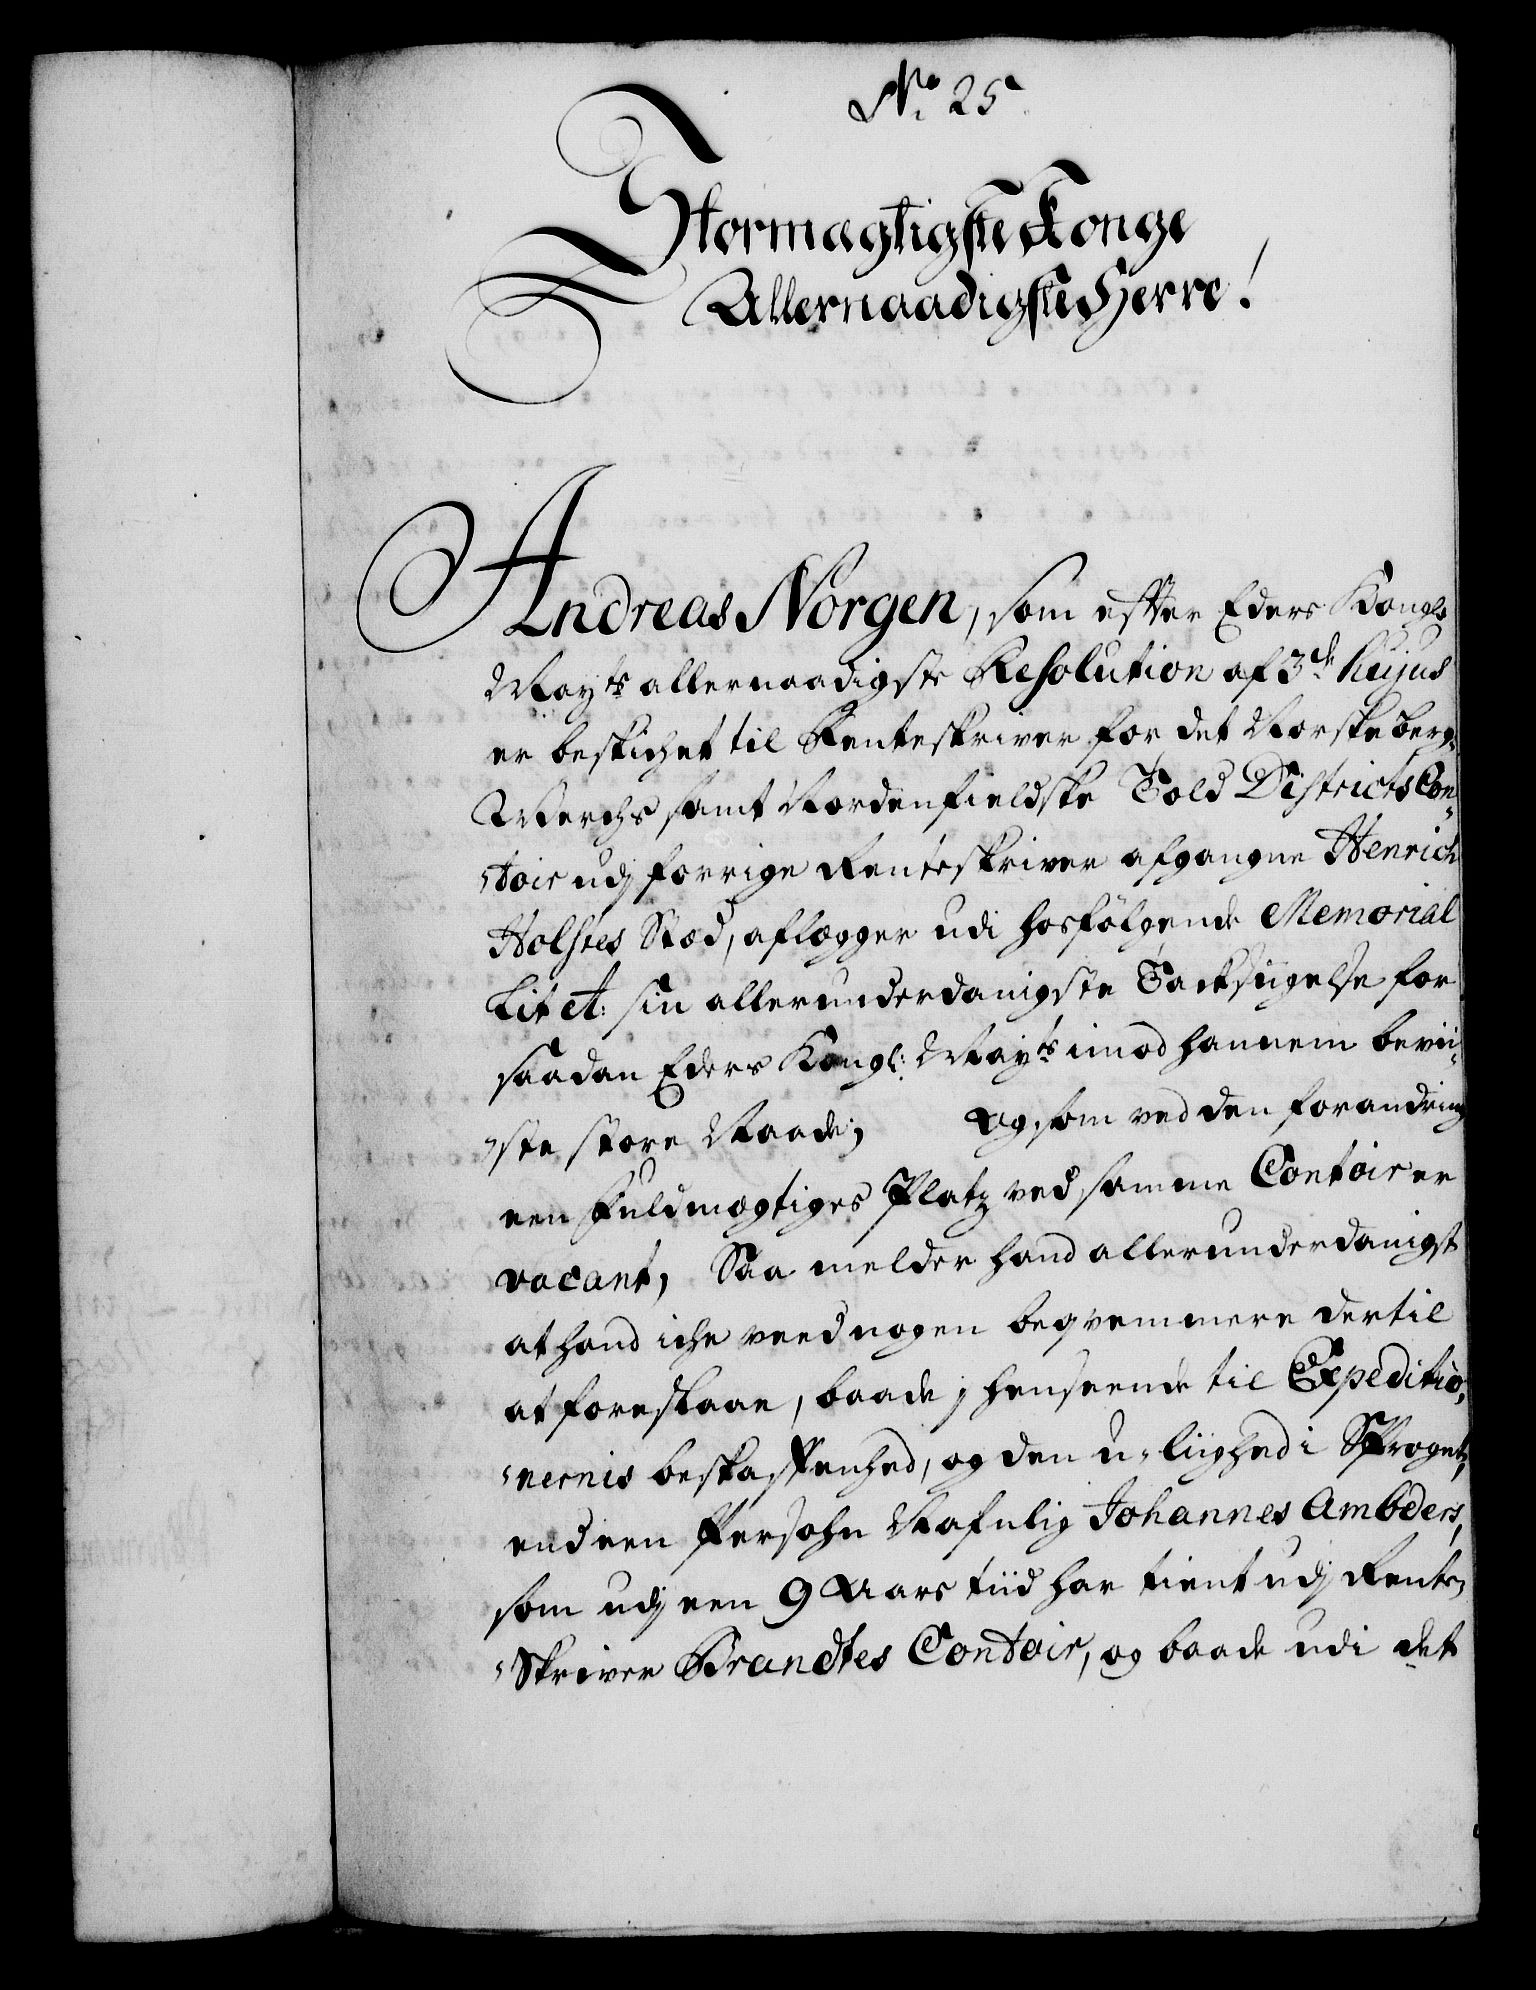 No. 25
Stormægtigste Konge
Allernaadigste Herre!
Andreas Norgen, som efter Eders Kongl.
Mayts allernaadigste Resolution af 3de hujus
er beskichet til Renteskriver for det Norske berg-
Werchs samt Nordenfieldske Told Districts Con-
-toir udj forrige Renteskriver afgangne Henrich
Holstes Stæd, aflægger udi hosfölgende Memorial
Lit A: sin allerunderdanigste Tacksigelse for
saadan Eders Kongl: Mayts imod hannem bevii-
-ste store Naade; og som ved den forandring
een Fuldmægtiges Platz ved samme Contoir er
vacant, Saa melder hand allerunderdanigst
at hand iche veed nogen beqvemmere dertil
at foreslaae, baade j henseende til Expeditio-
-nernis beskaffenhed, og den u-liighed i Sproget,
end een Persohn Nafnlig Johannes Amböders,
som udj een 9 Aars tiid har tient udj Rente-
-Skriver Brandtes Contoir, og baade udi det